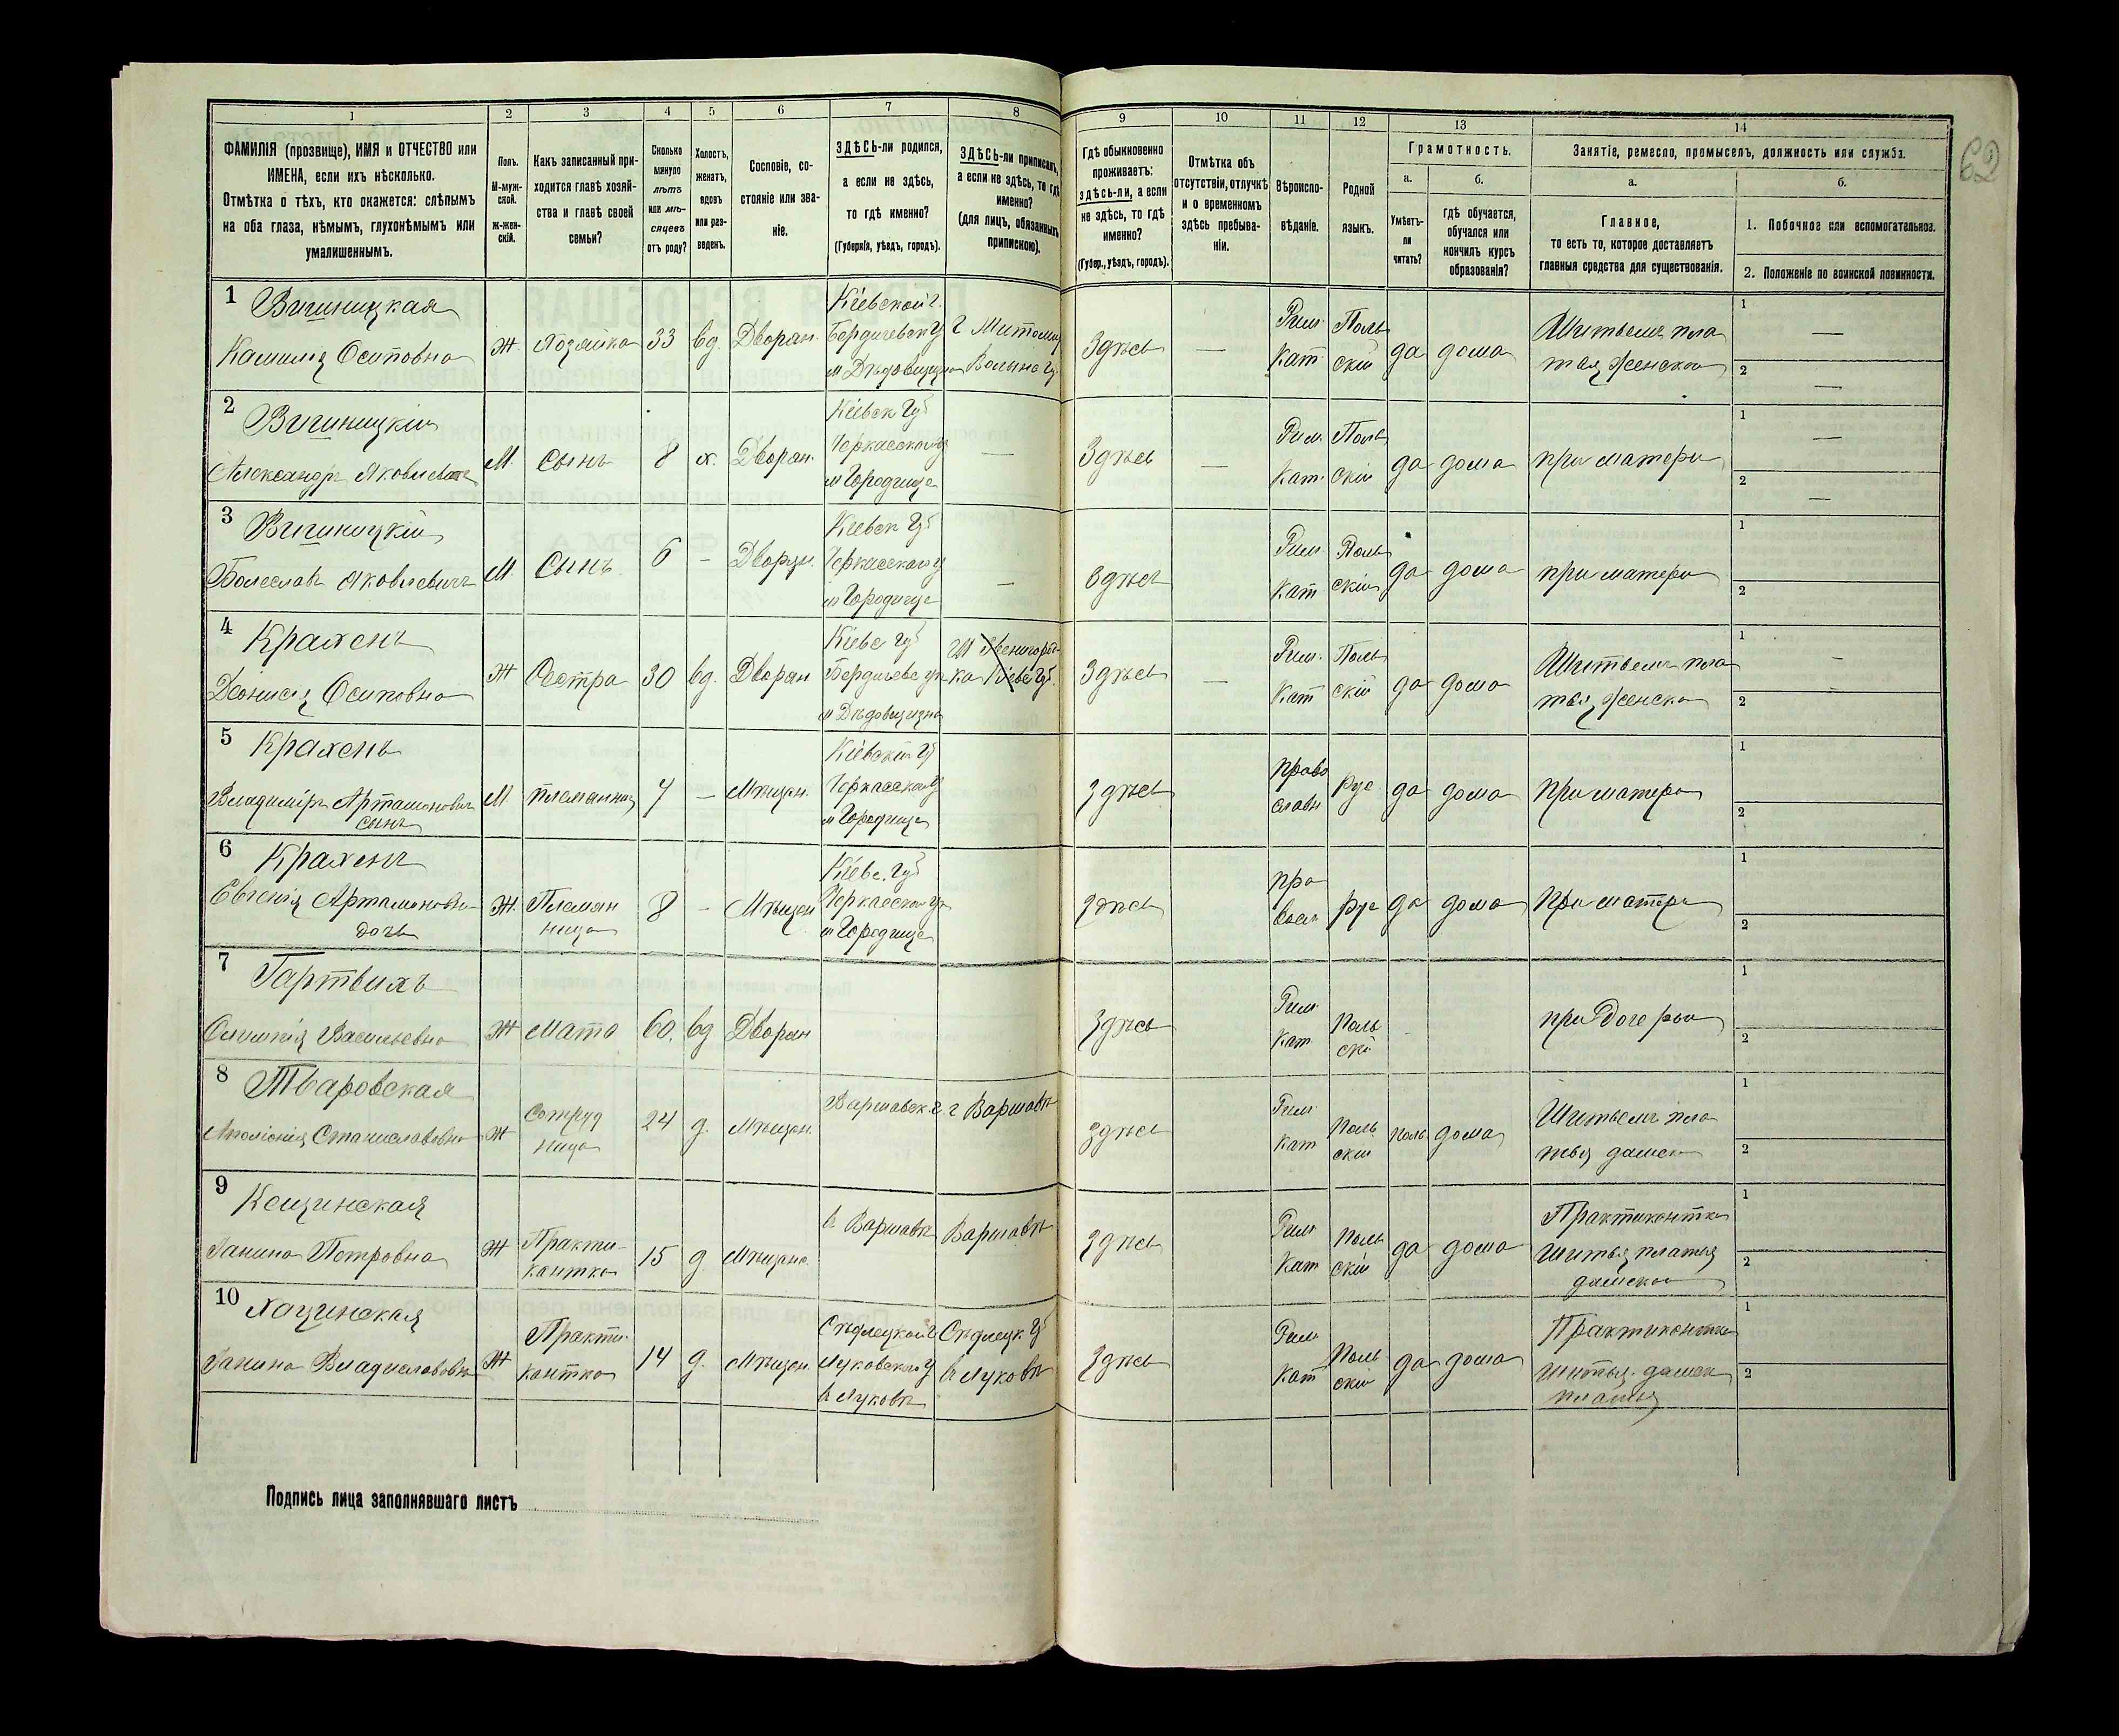 62
1 2 3 4 5 6 7 8 9 10 11 12 13 14
ФАМИЛІЯ (прозвище), ИМЯ и ОТЧЕСТВО или
ИМЕНА, если ихъ нѣсколько.
Отмѣтка о тѣхъ, кто окажется: слѣпымъ
на оба глаза, нѣмымъ, глухонѣмымъ или
умалишеннымъ.
Полъ.
М-муж-
ской.
ж-жен-
скій.
Какъ записанный при-
ходится главѣ хозяй-
ства и главѣ своей
семьи?
Сколько
минуло
лѣтъ
или мѣ-
сяцевъ
отъ роду?
Холостъ,
женатъ,
вдовъ
или раз-
веденъ.
Сословіе, со-
стояніе или зва-
ніе.
ЗДѢСЬ-ли родился,
а если не здѣсь,
то гдѣ именно?
(Губернія, уѣздъ, городъ).
ЗДѢСЬ-ли приписанъ,
а если не здѣсь, то гдѣ
именно?
(для лицъ, обязанныхъ
припискою).
Гдѣ обыкновенно
проживаетъ:
здѣсь-ли, а если
не здѣсь, то гдѣ
именно?
(Губер., уѣздъ, городъ).
Отмѣтка объ
отсутствіи, отлучкѣ
и о временномъ
здѣсь пребыва-
ніи.
Вѣроиспо-
вѣданіе.
Родной
языкъ.
Грамотность.
а.
Умѣетъ-
ли
читать?
б.
гдѣ обучается,
обучался или
кончилъ курсъ
образованія?
Занятіе, ремесло, промыселъ, должность или служба.
а.
Главное,
то есть то, которое доставляетъ
главныя средства для существованія.
б.
1. Побочное или вспомогательное.
2. Положеніе по воинской повинности.
1
Камилія Осиповна
Ж. Хозяйка 33 вд. Дворян.
Кіевской г.
Бердичевск у
м Дѣдовщизна
Здѣсь —
Рим.
Кат.
Поль
скій
да дома
Шитьемъ пла
тья женскаго
1 —
2 —
2
Александръ Яковлевичъ
М. Сынъ 8 х. Дворян.
Кіевск Губ
Черкасскаго у
м Городище
—
Здѣсь —
Рим.
Кат.
Поль
скій
да дома при матери
1 —
2 —
3
Болеславъ Яковлевичъ
М. Сынъ 6 — Дворян.
Кіевск Губ
Черкасскаго у
м Городище
—
Здѣсь
Рим.
Кат
Поль
скій
да дома при матери
1
2
4 Крахенъ
Діонисія Осиповна
Ж Сестра 30 вд. Дворян
Кіевс губ
Бердичевс у
м Дѣдовщизна
Здѣсь —
Рим.
Кат
Поль
скій
да дома
Шитьемъ пла
тья женска
1 –
2 –
5 Крахенъ
Владиміръ Артамоновъ
сынъ
М племянник 7 — Мѣщан.
Кіевской Губ
Черкасскаго у
м Городище
Здѣсь —
право
славн
рус да дома При матери
1
2
6 Крахенъ
Евгенія Артамоновна
дочь
Ж. Племян
ница
8 - Мѣщан
Кіевс. Губ
Черкасскаго у
м Городище
Здѣсь
пра
восл
рус да дома При матери
1
2
7 Гартвихъ
Васильевна
Ж Мать 60. вд Дворян
Здѣсь
Рим
Кат
Поль
скі
-
при дочерьи
1
2
8
Станиславовна
Ж
Сотруд
ница
24 д. Мѣщан.
Варшавск. г. г Варшавѣ
Здѣсь
Рим.
кат
Поль
скій
Поль дома
Шитьемъ пла
тья дамск
1
2
9
Янина Петровна
Ж
Практи-
кантка
15 д Мѣщанс.
в Варшавѣ Варшавѣ
Здѣсь
Рим
Кат
Поль
скій
да дома
Практикантка
шитья платья
дамскаго
1
2
10
Янина Владиславовна
Ж
Практи-
кантка
14 д. Мѣщан.
Сѣдлецкой г
Луковскаго у
в Луковѣ
Сѣдлецк губ
в Луковѣ
Здѣсь
Рим
Кат
Поль
скій
да дома
Практикантка
шитья дамск
платья
1
2
Подпись лица заполнявшаго листъ